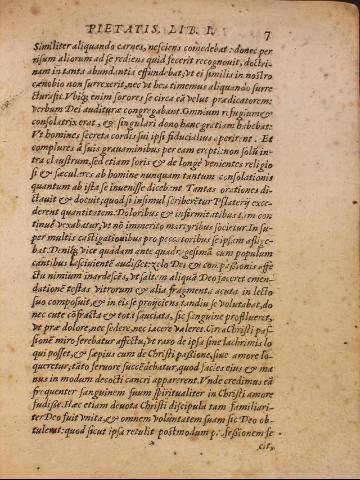 PIETATIS, LIB. I. 7
Similiter aliquando carnes, nesciens comedebat: donec per
visum aliorum ad se rediens quid fecerit recognouit, doctri-
nam in tanta abundantia effundebat; vt ei similis in nostro
cænobio non surrexerit, nec vt hæc timemus aliquando surre
ctura sit. Vbiq; enim sorores se circa eā velut prædicatorem:
verbum Dei auditura congregabant. Omnium refugium &
consolatrix erat, & singulari dono hanc gratiam habebat:
Vt homines secreta cordis sui ipsi fiducialius aperirent. Et
complures à suis grauaminibus per eam erepti: non solū in-
tra claustrum, sed etiam foris & de longè venientes religio
si & sæculares ab homine nunquam tantum consolationis
quantum ab ista se inuenisse dicebant Tantas orationes di-
ctauit & docuit; quod si insimul scriberētur Psalterij exce-
derent quantitatem. Doloribus & infirmitatibus tam con-
tinuè vexabatur, vt nō immeritò martyribus societur. In su-
per multis castigationibus pro peccatoribus se ipsam afflige-
bat. Deniq; vice quadam ante quadragesimā cum populum
cantibus lasciuientē audisset: zelo Dei & conpaßionis affe-
ctu nimium inardescēs, vt saltem aliquā Deo faceret emen-
dationē testas vitrorum & alia fragmenta acuta in lecto
suo composuit, & in eis se proijciens tandiu se volutabat, do-
nec cute cōfracta & tota sauciata, sic sanguine proflueret,
vt præ dolore, nec sedere, nec iacere valeret. Circa Christi pas-
sionē miro ferebatur affectu, vt raro de ipsa sine lachrimis lo
qui posset, & sæpius cum de Christi paßione, siue amore lo-
queretur, tāto feruore succēdebatur, quod facies eius & ma
nus in modum decocti cancri apparerent. Vnde credimus eā
frequenter sanguinem suum spiritualiter in Christi amore
fudisse. Hæc etiam deuota Christi discipula tam familiari-
ter Deo fuit vnita, & omnem volūntatem suam sic Deo ob-
tulerat: quod sicut ipsa retulit postmodum professionem se
city